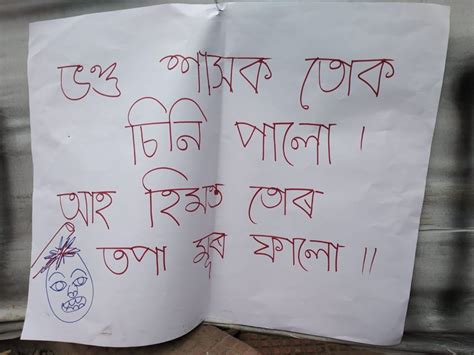 ভণ্ড শাসক তোক
চিনি পালো ।
আহ হিমন্ত তোৰ
তপা মূৰ ফালো ॥